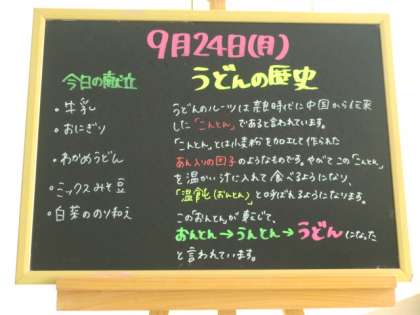 9月24日(月)
今日の献立
・牛乳
・おにぎり
・わかめうどん
・ミックスみそ豆
・白菜ののり和え
うどんの歴史
うどんのルーツは奈良時代に中国から伝来
した「こんとん」であると言われています。
「こんとん」とは小麦粉を加工して作られた
あん入りの団子のようなものです。やがてこの「こんとん」
を温かい汁に入れて食べるようになり、
「温飩(おんとん)」と呼ばれるようになります。
このおんとんが転じて、
おんとん→うんとん→うどんになった
と言われています。